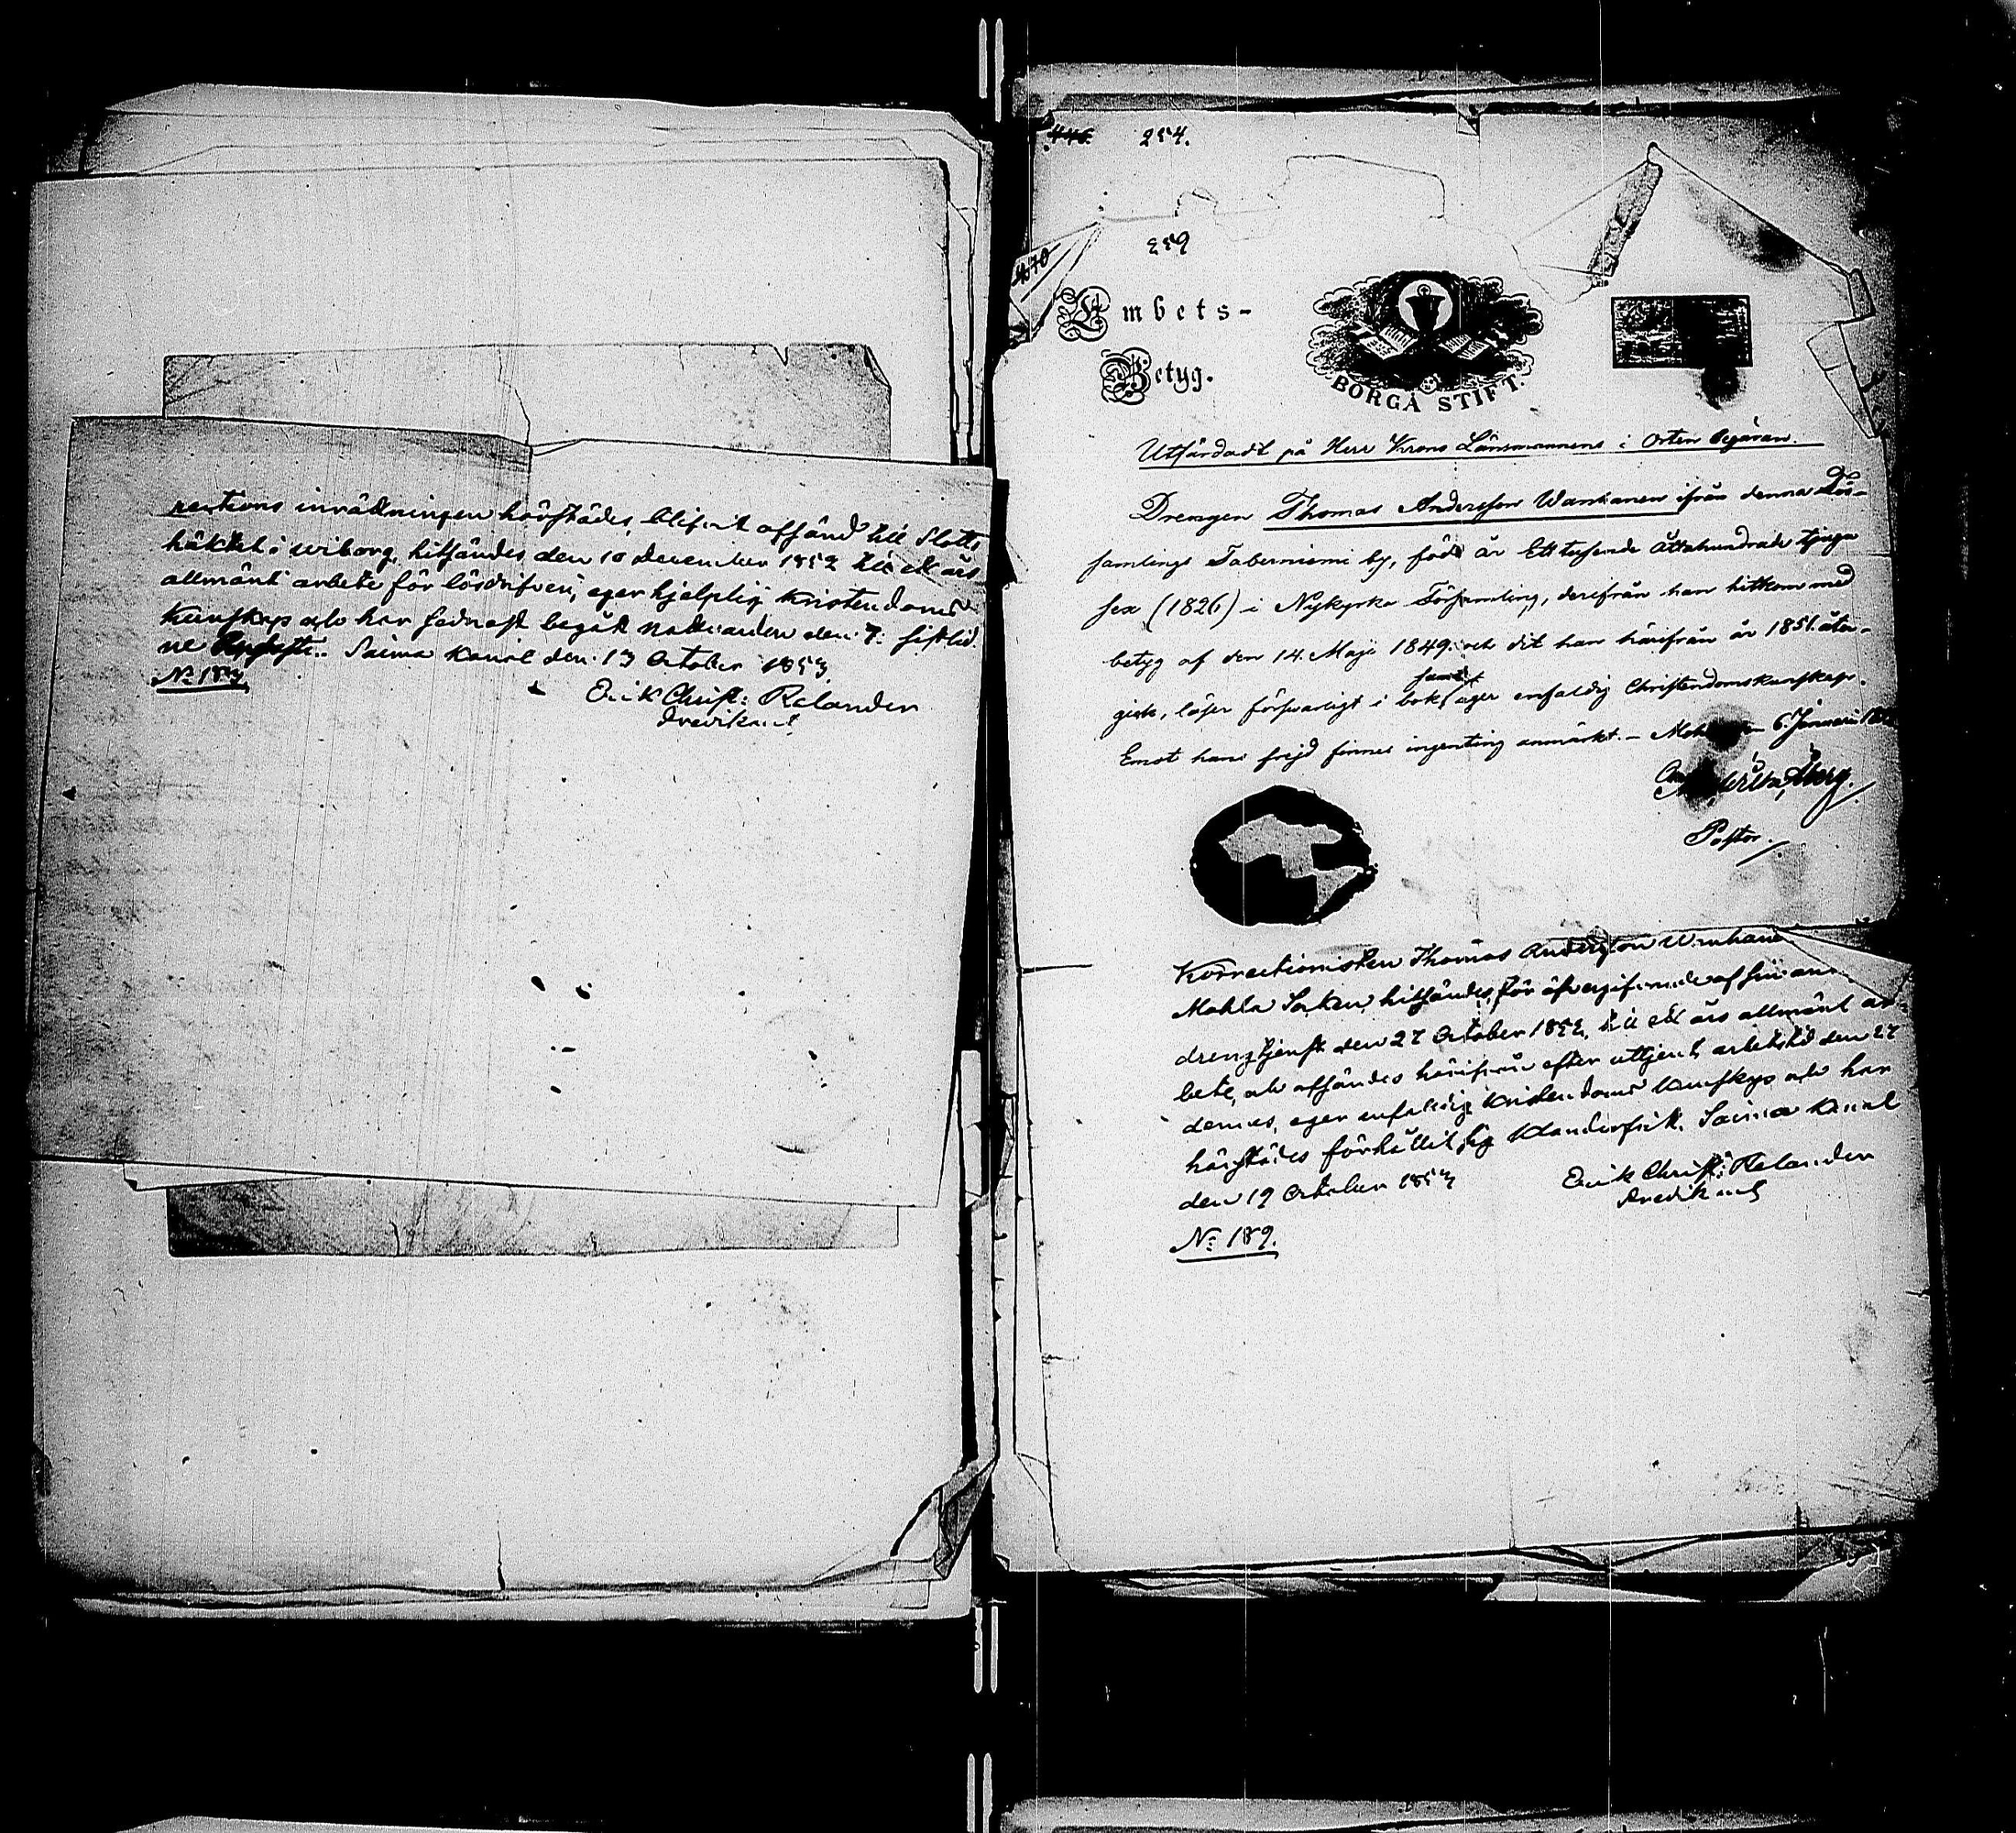 rections inrättningen härstädes, blifvit affänd till Slotts
häktet i Wiborg, hitsändes den 10 December 1852 till ett års
allmänt arbete för lösdrifveri, eger hjelplig kristendoms
kunskap och har sednast begått nattvarden den 7: sistlid.
ne Augusti. Saima Kanal den 13 October 1853.
No 183
Erik Christ: Relander
Predikant
446. 254.
259
470
Embets-
Betyg.
BORGÅ STIFT.
Utfärdadt på Herr Krono Länsmannens i Orten begäran.
Drengen Thomas Andersson Wankanen ifrån denna För-
samlings Taberniemi by, född år Ett tusende Åttahundrade tjugu
sex (1826) i Nykyrka Församling, derifrån han hitkom med
betyg af den 14. Maji 1849. och dit han härifrån år 1851. åter-
gick, läser försvarligt i bok samt äger enfaldig Christendomskunskap.
Emot hans frejd finnes ingenting anmärkt. — 6. Januarii
Pastor.
Korrectionisten Thomas Andersson
Mohla Socken, hitsändes, för öfvergifvande af sin
drengtjenst den 27 October 1852, till ett års allmänt ar-
bete, och affändes härifrån efter uttjent arbetstid den 27
dennes, eger enfaldig kristendoms kunskap och har
härstädes förhållit sig klanderfritt. Saima Kanal
den 19 October 1853
Erik Christ: Relander
Predikant
No 189.